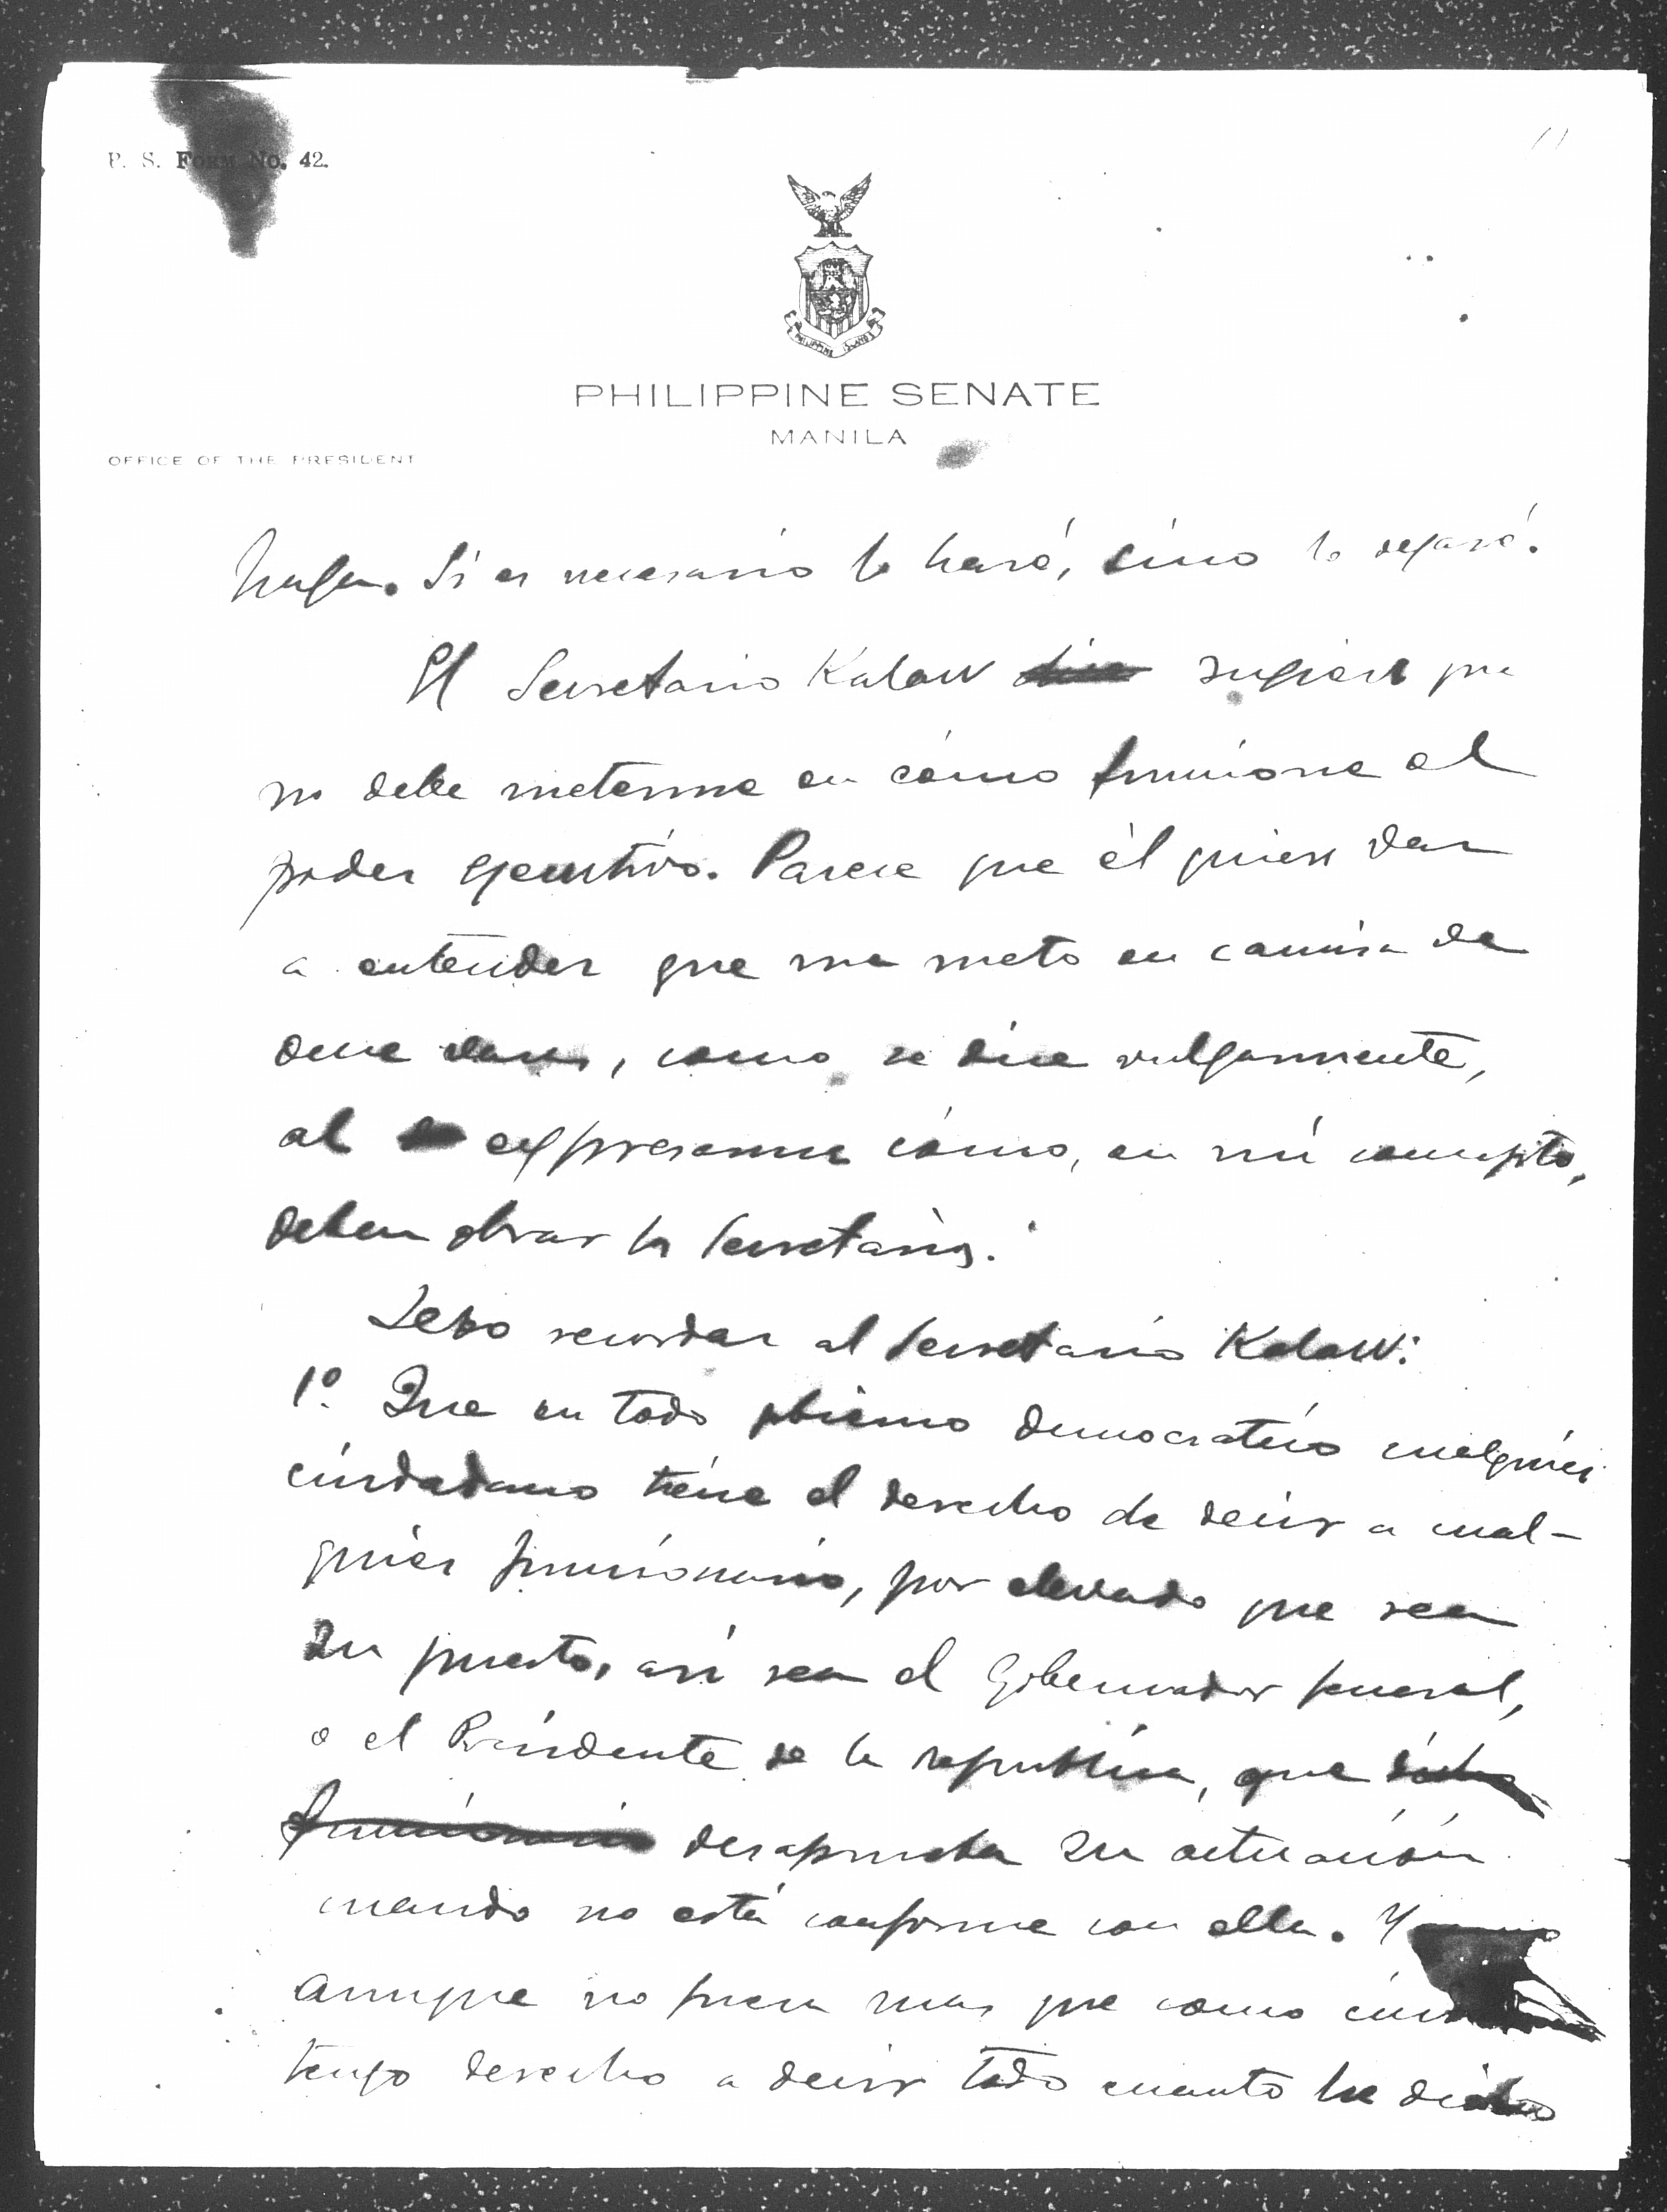 P. S. FORM NO. 42.
11
PHILIPPINE ISLANDS
PHILIPPINE SENATE
MANILA
OFFICE OF THE PRESIDENT
haga. Si es necesario lo haré, sino lo dejaré.
El Secretario Kalaw dice sugiere que
no debe meterme en cómo funciona el
poder ejecutivo. Parece que él quiere dar
a entender que me meto en camisa de
once varas, como se dice vulgarmente,
al expresarme cómo, en mi concepto,
deben obrar los Secretarios.
Debo recordar al Secretario Kalaw:
1º. Que en todo gobierno democratico cualquier
ciudadano tiene el derecho de decir a cual-
quier funcionario, por elevado que sea
su puesto, así sea el Gobernador General,
o el Presidente de la republica, que dicho
funcionario desaprueba su actuación
cuando no está conforme con ella. Y
aunque no fuera mas que como
tengo derecho a decir todo cuanto he dicho